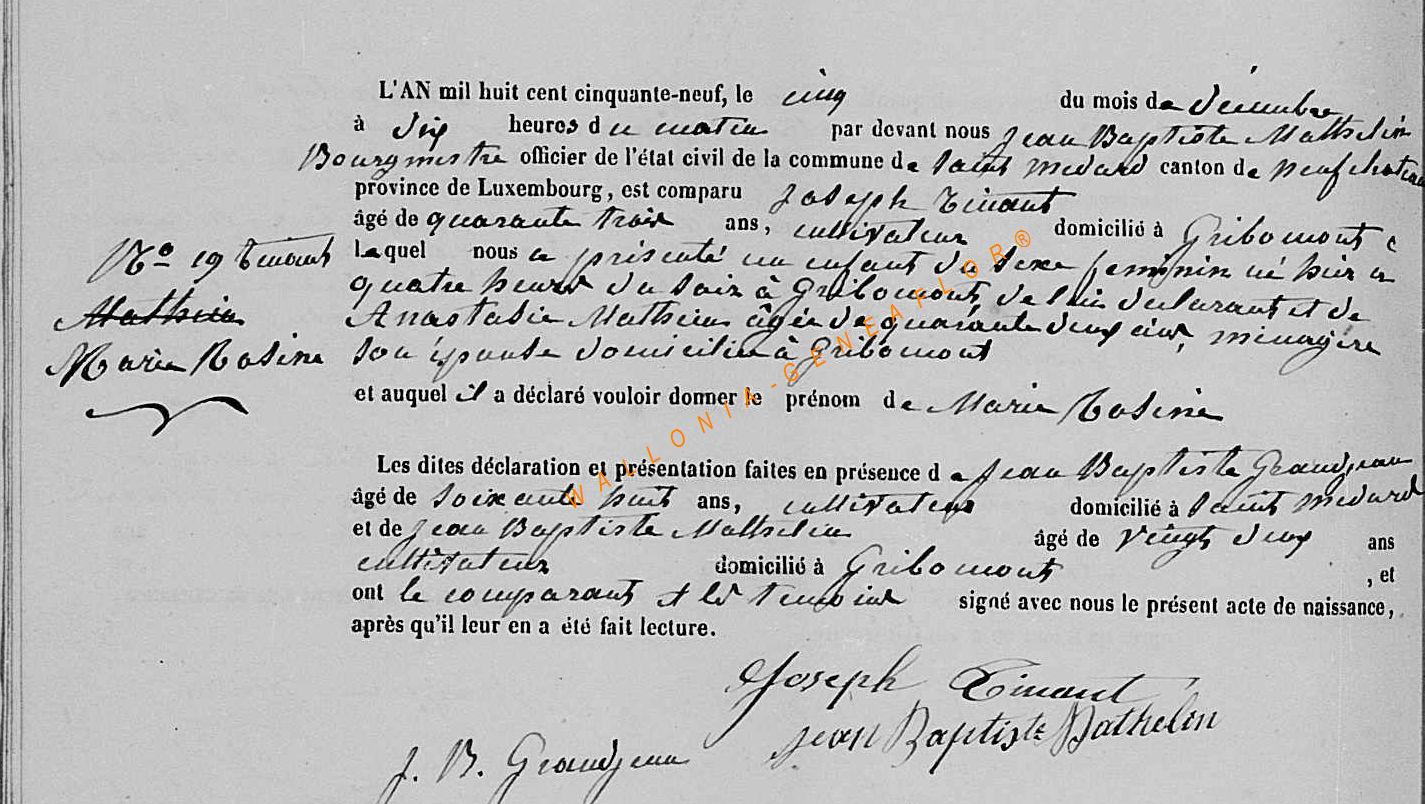 L'AN mil huit cent cinquante-neuf, le cinq du mois de décembre
à dix heures du matin par devant nous Jean Baptiste Mathelin
Bourgmestre officier de l'état civil de la commune de Saint Medard canton de Neufchateau
province de Luxembourg, est comparu Joseph Tinant
âgé de quarante trois ans, cultivateur domicilié à Gribomont
lequel nous a présenté un enfant du sexe feminin né hier a
quatre heures du soir à Gribomont, de lui déclarant et de
Anastasie Mathieu âgée de quarante deux ans, ménagère
son épouse domiciliée à Gribomont
et auquel il a déclaré vouloir donner le prénom de Marie Rosine
N° 19 Tinant
Mathieu
Marie Rosine
Les dites déclaration et présentation faites en présence de Jean Baptiste Grandjean
âgé de soixante huit ans, cultivateur domicilié à Saint Medard
et de Jean Baptiste Mathelin âgé de vingt deux ans
cultivateur domicilié à Gribomont , et
ont le comparant et les temoins signé avec nous le présent acte de naissance,
après qu'il leur en a été fait lecture.
Joseph Tinant
Jean Baptiste Mathelin
J. B. Grandjean
WALLONIA-GENEAFLOR®